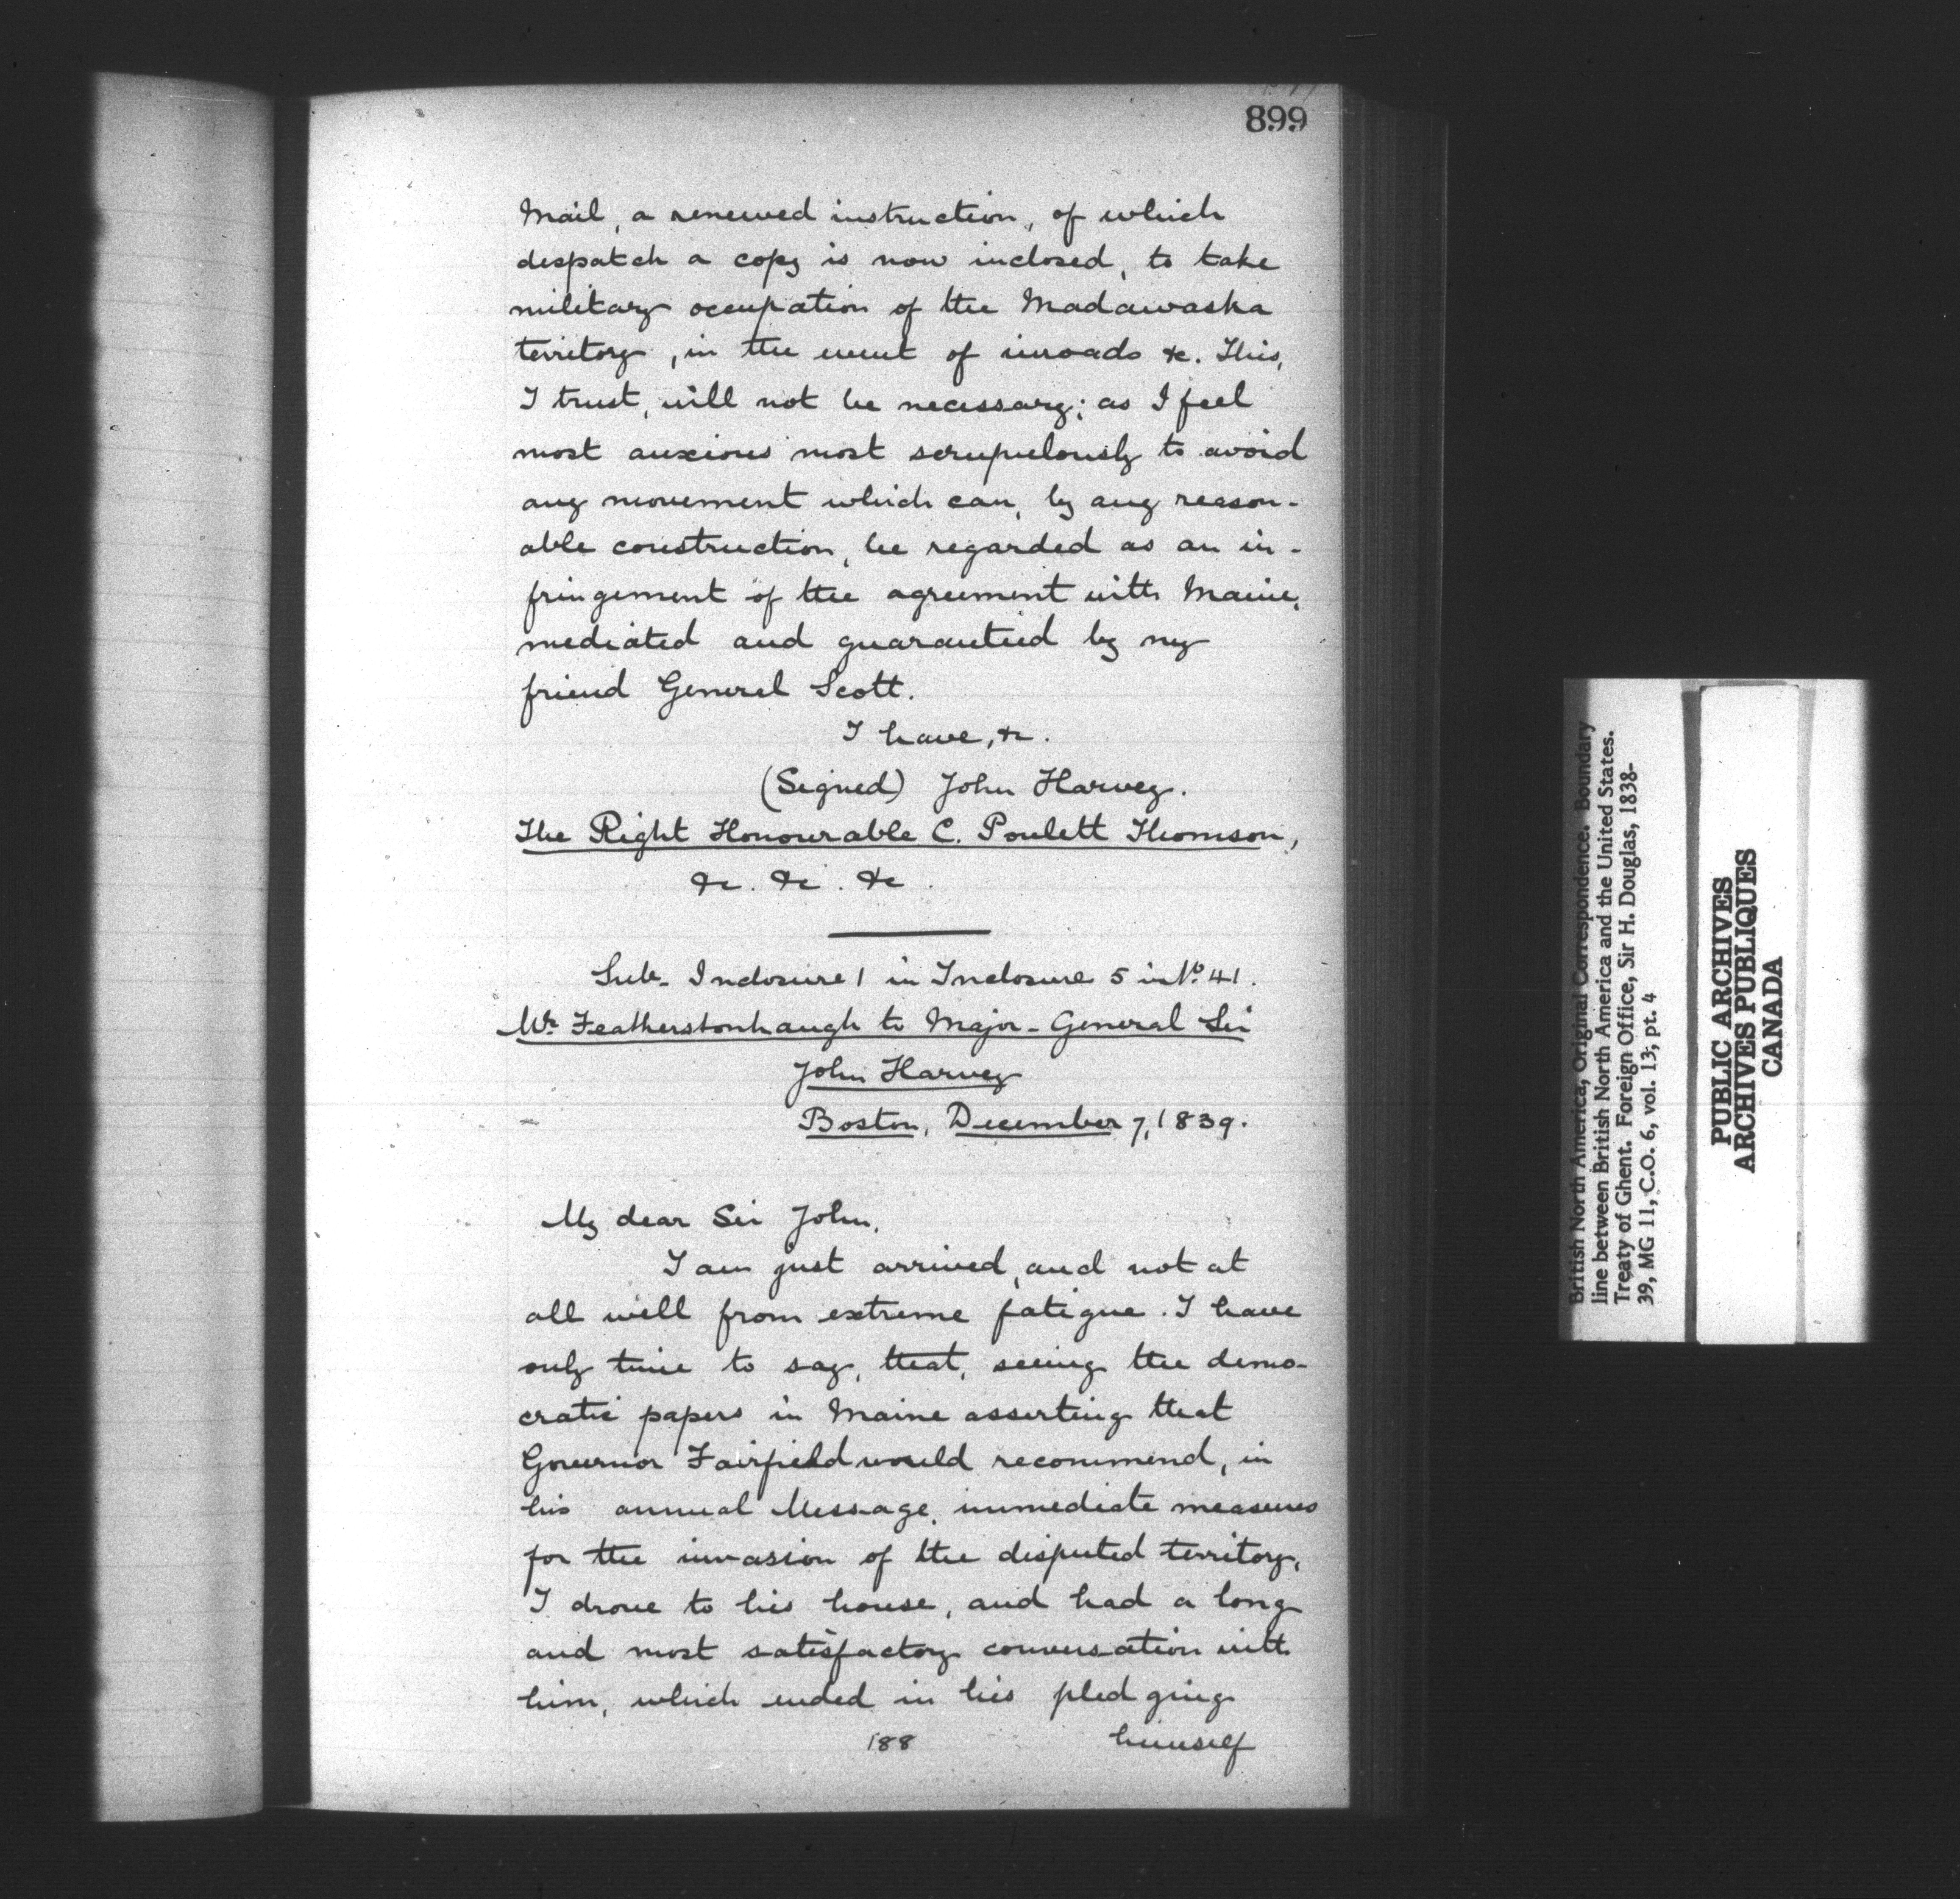 899
Mail, a renewed instruction, of which
dispatch a copy is now inclosed, to take
military occupation of the Madawaska
territory, in the event of inroads &c. This,
I trust, will not be necessary; as I feel
most anxious most scrupulously to avoid
any movement which can, by any reason-
able construction, be regarded as an in-
fringement of the agreement with Maine,
mediated and guarantied by my
friend General Scott.
I have, &c.
(Signed) John Harvey.
The Right Honourable C. Poulett Thomson,
&c. &c. &c.
Sub-Inclosure 1 in Inclosure 5 in No. 41.
Mr. Featherstonhaugh to Major-General Sir
John Harvey
Boston, December 7, 1839.
My dear Sir John,
I am just arrived, and not at
all well from extreme fatigue. I have
only time to say, that, seeing the demo-
cratic papers in Maine asserting that
Governor Fairfield would recommend, in
his annual Message, immediate measures
for the invasion of the disputed territory,
I drove to his house, and had a long
and most satisfactory conversation with
him, which ended in his pledging
188 himself
British North America, Original Correspondence. Boundary
line between British North America and the United States.
Treaty of Ghent. Foreign Office, Sir H. Douglas, 1838-
39, MG 11, C.O. 6, vol. 13, pt. 4
PUBLIC ARCHIVES
ARCHIVES PUBLIQUES
CANADA